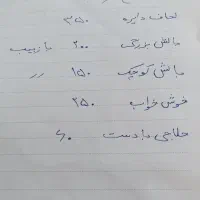 لحاف دایره ۳۵۰
بالش بزرگ ۲۰۰ با زیپ
بالش کوچک ۱۵۰ 〃
خوش خواب ۲۵۰
حلاجی با دست ۶۰